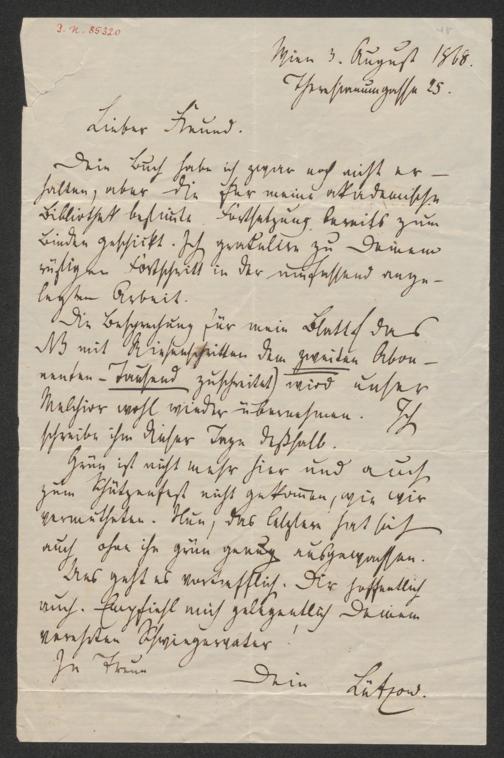 3. N. 85320
Wien 3. August 1868.
Theresianumgasse 25.
Lieber Freund.
Dein Buch habe ich zwar noch nicht er-
halten, aber die für meine akademische
Bibliothek bestimmte Fortsetzung bereits zum
Binden geschickt. Ich gratulire zu Deinem
rüstigen Fortschritt in der umfassend ange-
legten Arbeit.
Die Besprechung für mein Blatt (das
NB mit Riesenschritten dem zweiten Abon-
nenten-Tausend zuschreitet) wird unser
Melchior wohl wieder übernehmen. Ich
schreibe ihm dieser Tage deßhalb.
Grün ist nicht mehr hier und auch
zum Schützenfest nicht gekommen, wie wir
vermutheten. Nun, das letztere hat sich
auch ohne ihn grün genug ausgewachsen.
Uns geht es vortrefflich. Dir hoffentlich
auch. Empfiehl mich gelegentlich Deinem
verehrten Schwiegervater!
In Treue
Dein Lützow.